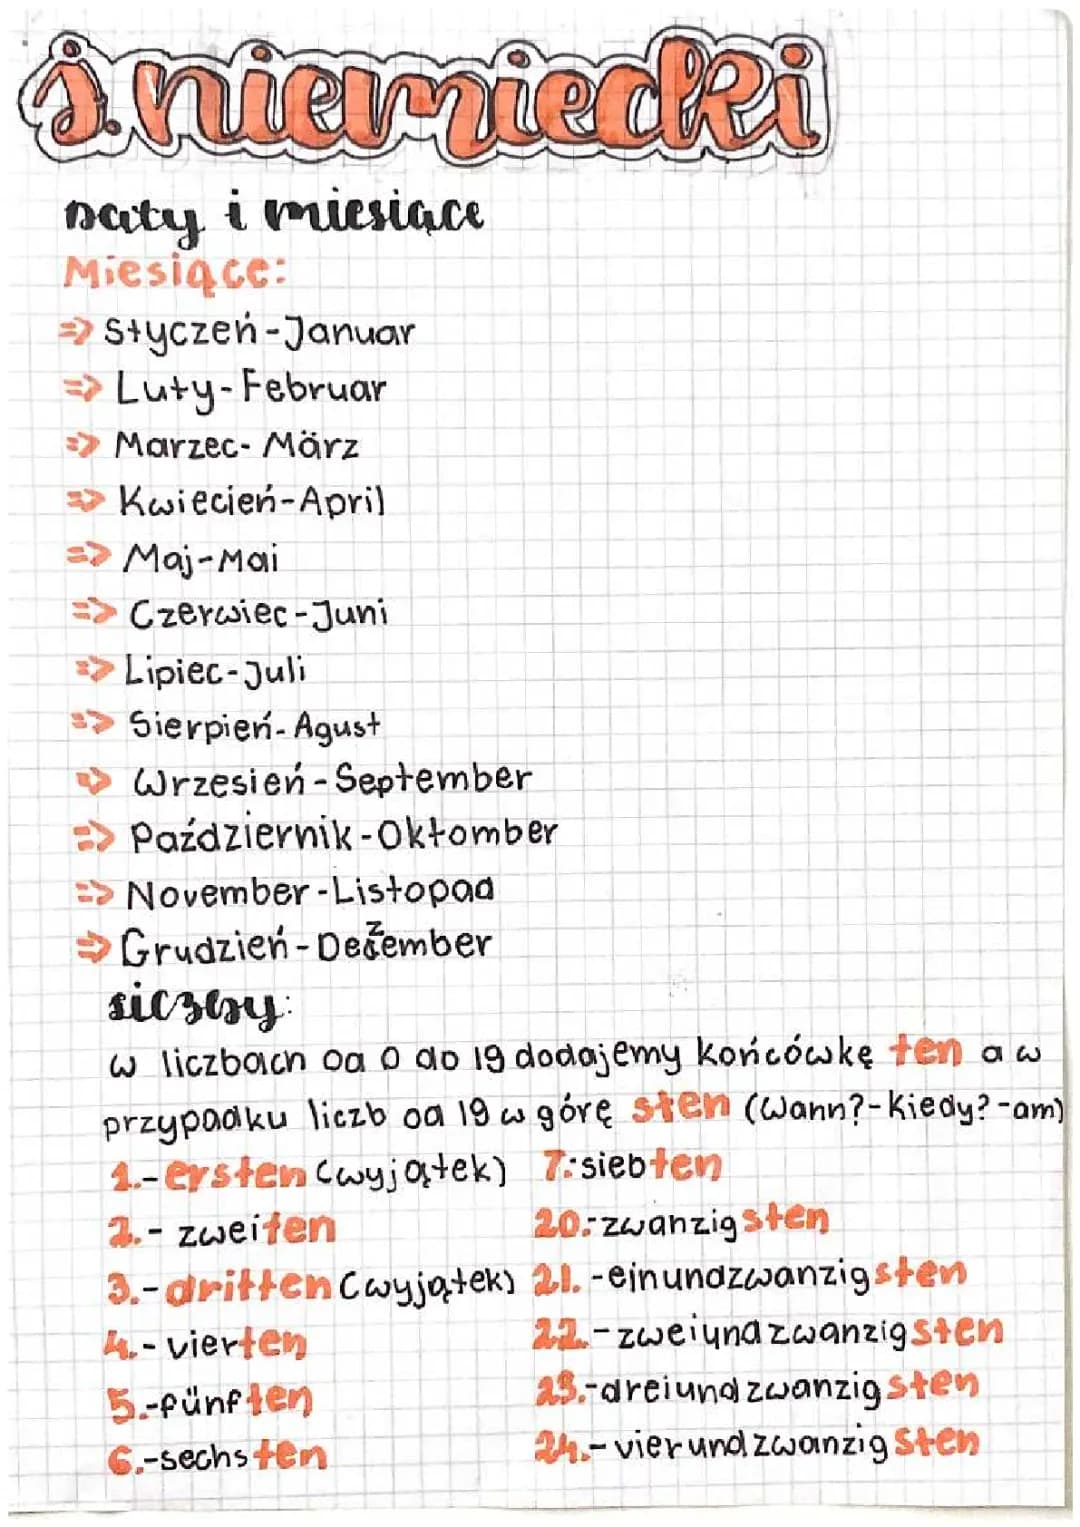 j.niemiecki
Daty i miesiące
Miesiące:
=> Styczeń-Januar
=> Luty-Februar
=> Marzec-März
=> Kwiecień-April
=> Maj-Mai
=> Czerwiec-Juni
=> Lipiec-Juli
=> Sierpień-Agust
=> Wrzesień-September
=> Październik-Oktomber
=> November-Listopad
=> Grudzień-Dezember
Liczby:
w liczbach od 0 do 19 dodajemy końcówkę ten a w
przypadku liczb od 19 w górę sten (Wann?-Kiedy?-am)
1.-ersten (wyjątek) 7.-siebten
2.- zweiten 20.-zwanzigsten
3.-dritten (wyjątek) 21.-einundzwanzigsten
4.-vierten 22.-zweiyndzwanzigsten
5.-fünften 23.-dreiundzwanzigsten
6.-sechsten 24.-vierundzwanzigsten